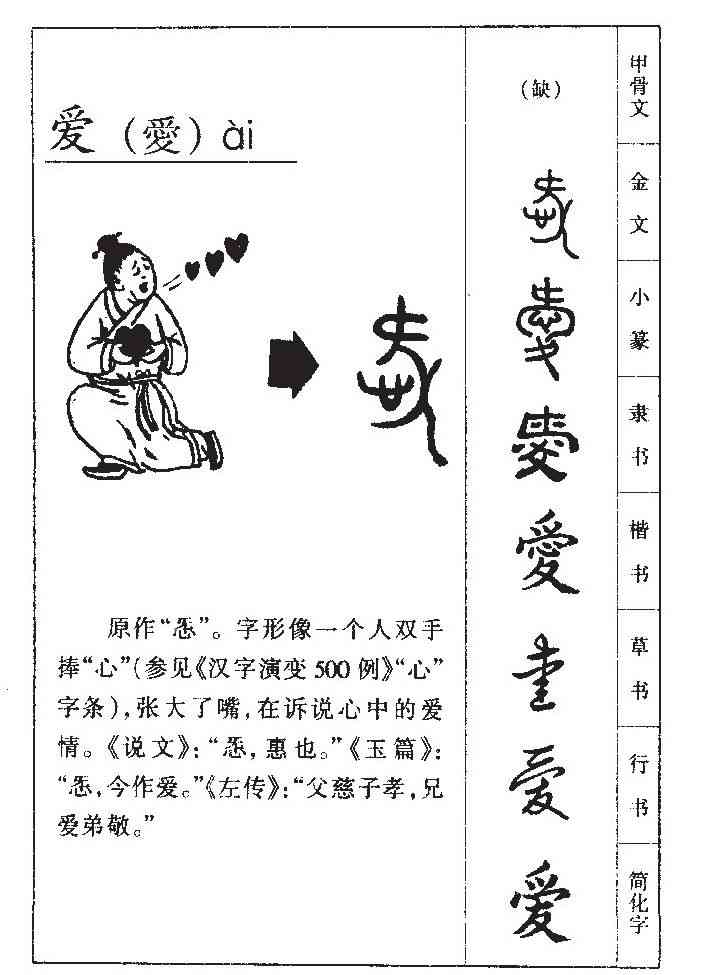 爱（愛）ài
原作“㤅”。字形像一个人双手
捧“心”（参见《汉字演变500例》“心”
字条），张大了嘴，在诉说心中的爱
情。《说文》：“㤅，惠也。”《玉篇》：
“㤅，今作爱。”《左传》：“父慈子孝，兄
爱弟敬。”
（缺）
甲骨文
金文
小篆
隶书
愛
楷书
草书
行书
爱
简化字